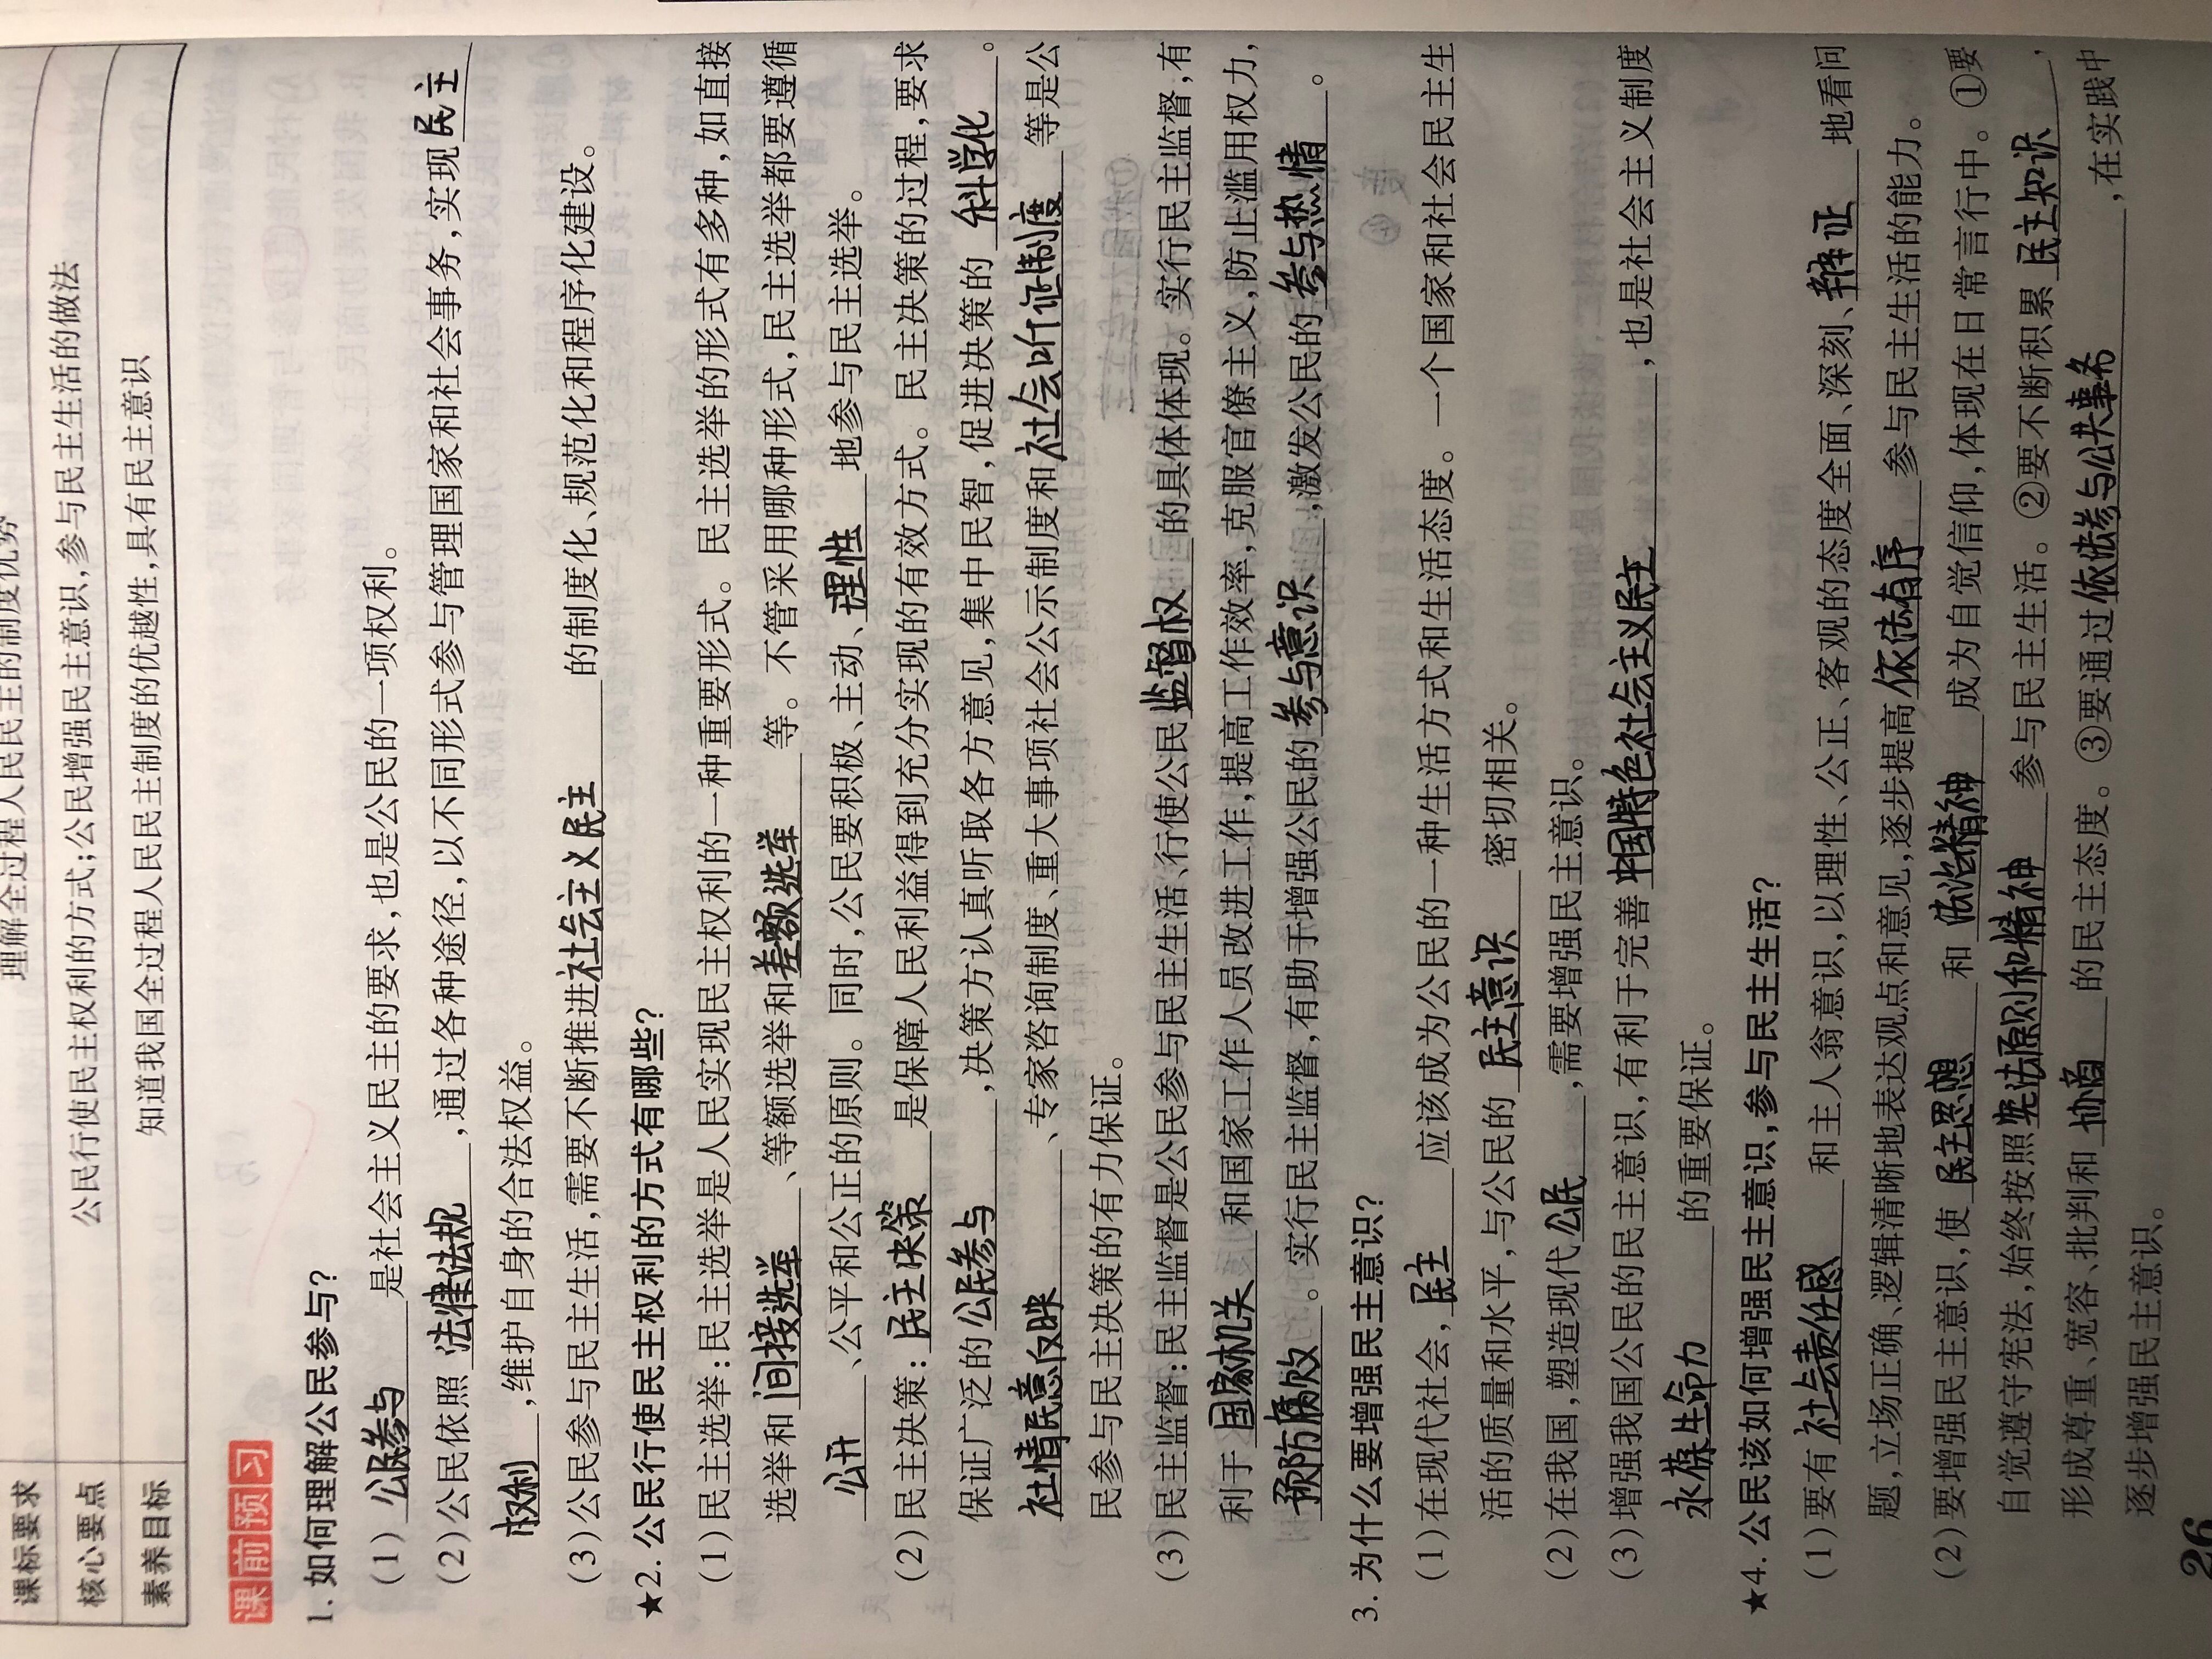 课标要求 理解全过程人民民主的制度优势
核心要点 公民行使民主权利的方式;公民增强民主意识,参与民主生活的做法
素养目标 知道我国全过程人民民主制度的优越性,具有民主意识
课前预习
1. 如何理解公民参与?
(1) 公民参与 是社会主义民主的要求,也是公民的一项权利。
(2)公民依照 法律法规 ,通过各种途径,以不同形式参与管理国家和社会事务,实现民主
权利 ,维护自身的合法权益。
(3)公民参与民主生活,需要不断推进社会主义民主 的制度化、规范化和程序化建设。
★2. 公民行使民主权利的方式有哪些?
(1)民主选举:民主选举是人民实现民主权利的一种重要形式。民主选举的形式有多种,如直接
选举和 间接选举 、等额选举和差额选举 等。不管采用哪种形式,民主选举都要遵循
公开 、公平和公正的原则。同时,公民要积极、主动、理性 地参与民主选举。
(2)民主决策: 民主决策 是保障人民利益得到充分实现的有效方式。民主决策的过程,要求
保证广泛的公民参与 ,决策方认真听取各方意见,集中民智,促进决策的 科学化 。
社情民意反映 、专家咨询制度、重大事项社会公示制度和社会听证制度 等是公
民参与民主决策的有力保证。
(3)民主监督:民主监督是公民参与民主生活、行使公民监督权 的具体体现。实行民主监督,有
利于 国家机关 和国家工作人员改进工作,提高工作效率,克服官僚主义,防止滥用权力,
预防腐败 。实行民主监督,有助于增强公民的 参与意识 ,激发公民的 参与热情 。
3. 为什么要增强民主意识?
(1)在现代社会, 民主 应该成为公民的一种生活方式和生活态度。一个国家和社会民主生
活的质量和水平,与公民的 民主意识 密切相关。
(2)在我国,塑造现代 公民 ,需要增强民主意识。
(3)增强我国公民的民主意识,有利于完善 中国特色社会主义民主 ,也是社会主义制度
永葆生命力 的重要保证。
★4. 公民该如何增强民主意识,参与民主生活?
(1)要有 社会责任感 和主人翁意识,以理性、公正、客观的态度全面、深刻、辩证 地看问
题,立场正确、逻辑清晰地表达观点和意见,逐步提高 依法有序 参与民主生活的能力。
(2)要增强民主意识,使 民主思想 和 法治精神 成为自觉信仰,体现在日常言行中。①要
自觉遵守宪法,始终按照宪法原则和精神 参与民主生活。②要不断积累 民主知识 ,
形成尊重、宽容、批判和 协商 的民主态度。③要通过依法参与公共事务 ,在实践中
逐步增强民主意识。
26